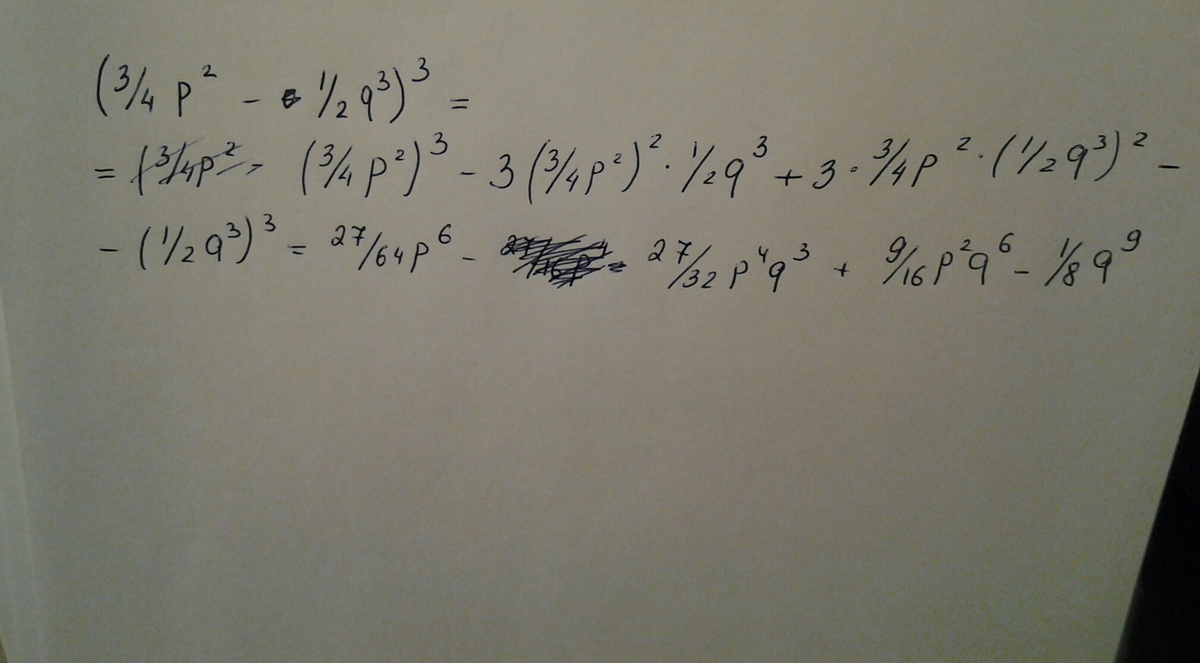 (3/4 p² - 1/2 q³)³ =
= (3/4 p²)³ - 3(3/4 p²)² · 1/2 q³ + 3 · 3/4 p² · (1/2 q³)² -
- (1/2 q³)³ = 27/64 p⁶ - 27/32 p⁴q³ + 9/16 p²q⁶ - 1/8 q⁹